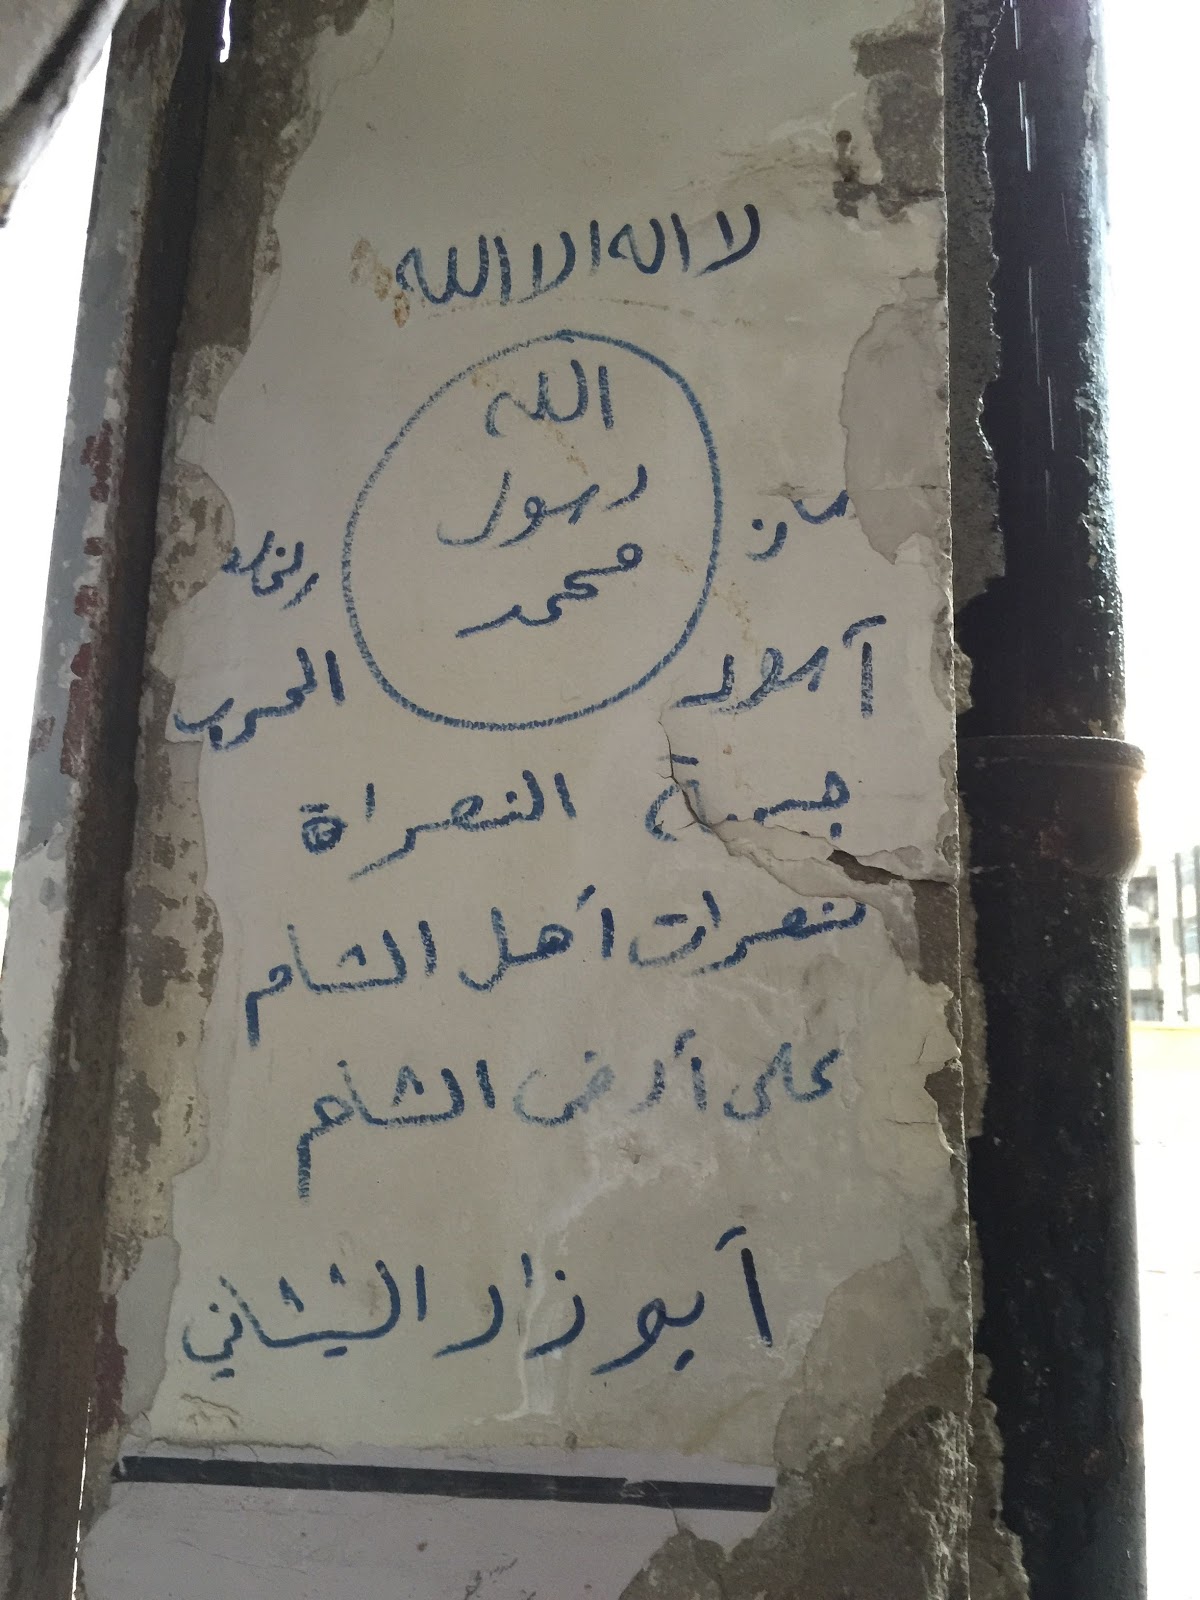 لا اله الا الله
الله
رسول
محمد
آسود الحرب
جبهة النصراة
لنصرات أهل الشام
على أرض الشام
أبو زار الشيشاني